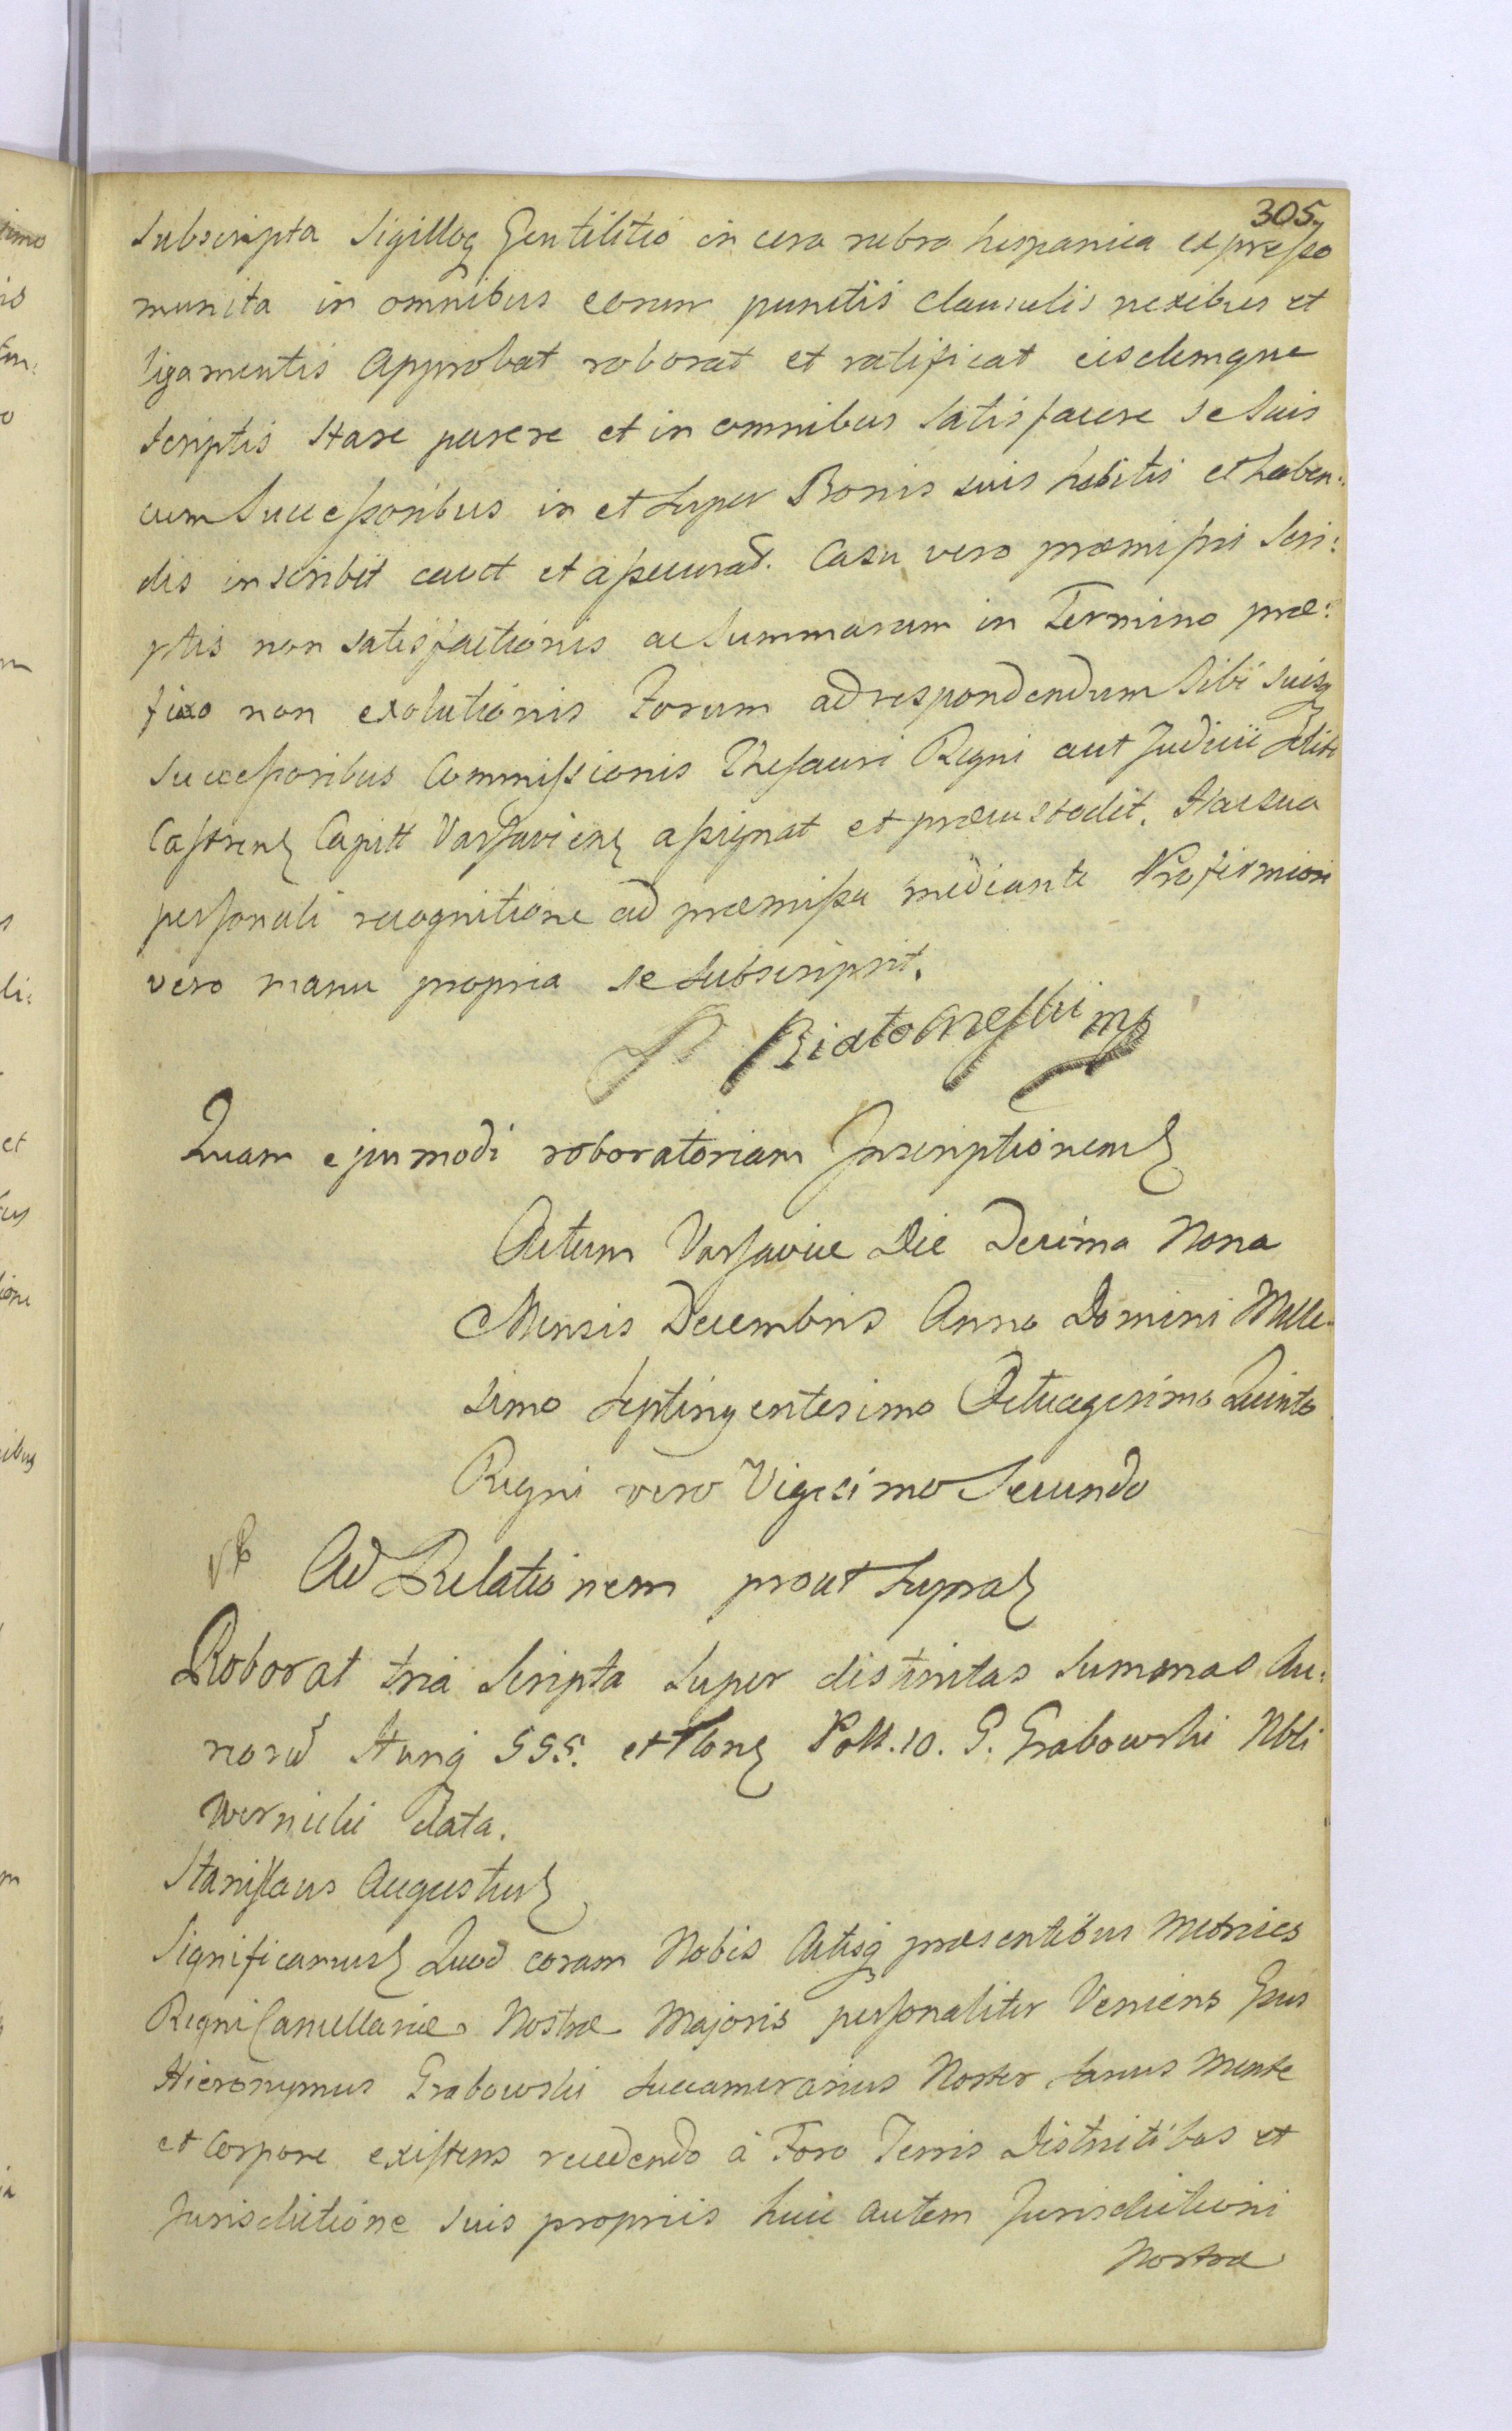 305.
Subscripta Sigilloq Gentilitio in cera rubra hespanica expreſso
munita in omnibus eorum punctis clausulis nexibus et
ligamentis approbat roborat et ratificat eisdemque
Scriptis Stare parere et in omnibus Satisfacere se Suis
cum Succeſsoribus in et Super Bonis suis habitis et haben:
dis inscribit cavet et aſsecurat. Casu vero præmiſsis Scri:
ptis non satisfactionis ac Summarum in Termino præ:
fixo non exolutionis Forum ad respondendum Sibi Suisq
Succeſsoribus Commiſsionis Theſauri Regni aut Judicii
Caſtrenſ Capitt Varſavienſ aſsignat et præcustodit. Hac sua
perſonali recognitione ad præmiſsa mediante Pro firmiori
vero manu propria se Subscripsit.
Białobrzeſki mp
Quam ejusmodi roboratoriam Inscriptionem
Actum Varſaviæ Die Decima Nona
Mensis Decembris Anno Domini Mille-
simo Septingentesimo Octuagesimo Quinto
Regni vero Vigesimo Secundo
Ad Relationem prout Supra
Roborat tria Scripta Super distinctas Summas Au:
reorũ Hung 555. et Flonſ Poll. 10. G. Grabowski Nbli
Wernicki data.
Staniſlaus Augustus
Significamus Quod coram Nobis Actisq præsentibus Metrices
Regni Cancellariæ Nostræ Majoris perſonaliter Veniens Gſus
Hieronymus Grabowski Succamerarius Noster Sanus Mente
et Corpore exiſtens recedendo à Foro Terris Districtibus et
Jurisdictione suis propriis huic autem Jurisdictioni
Nostræ